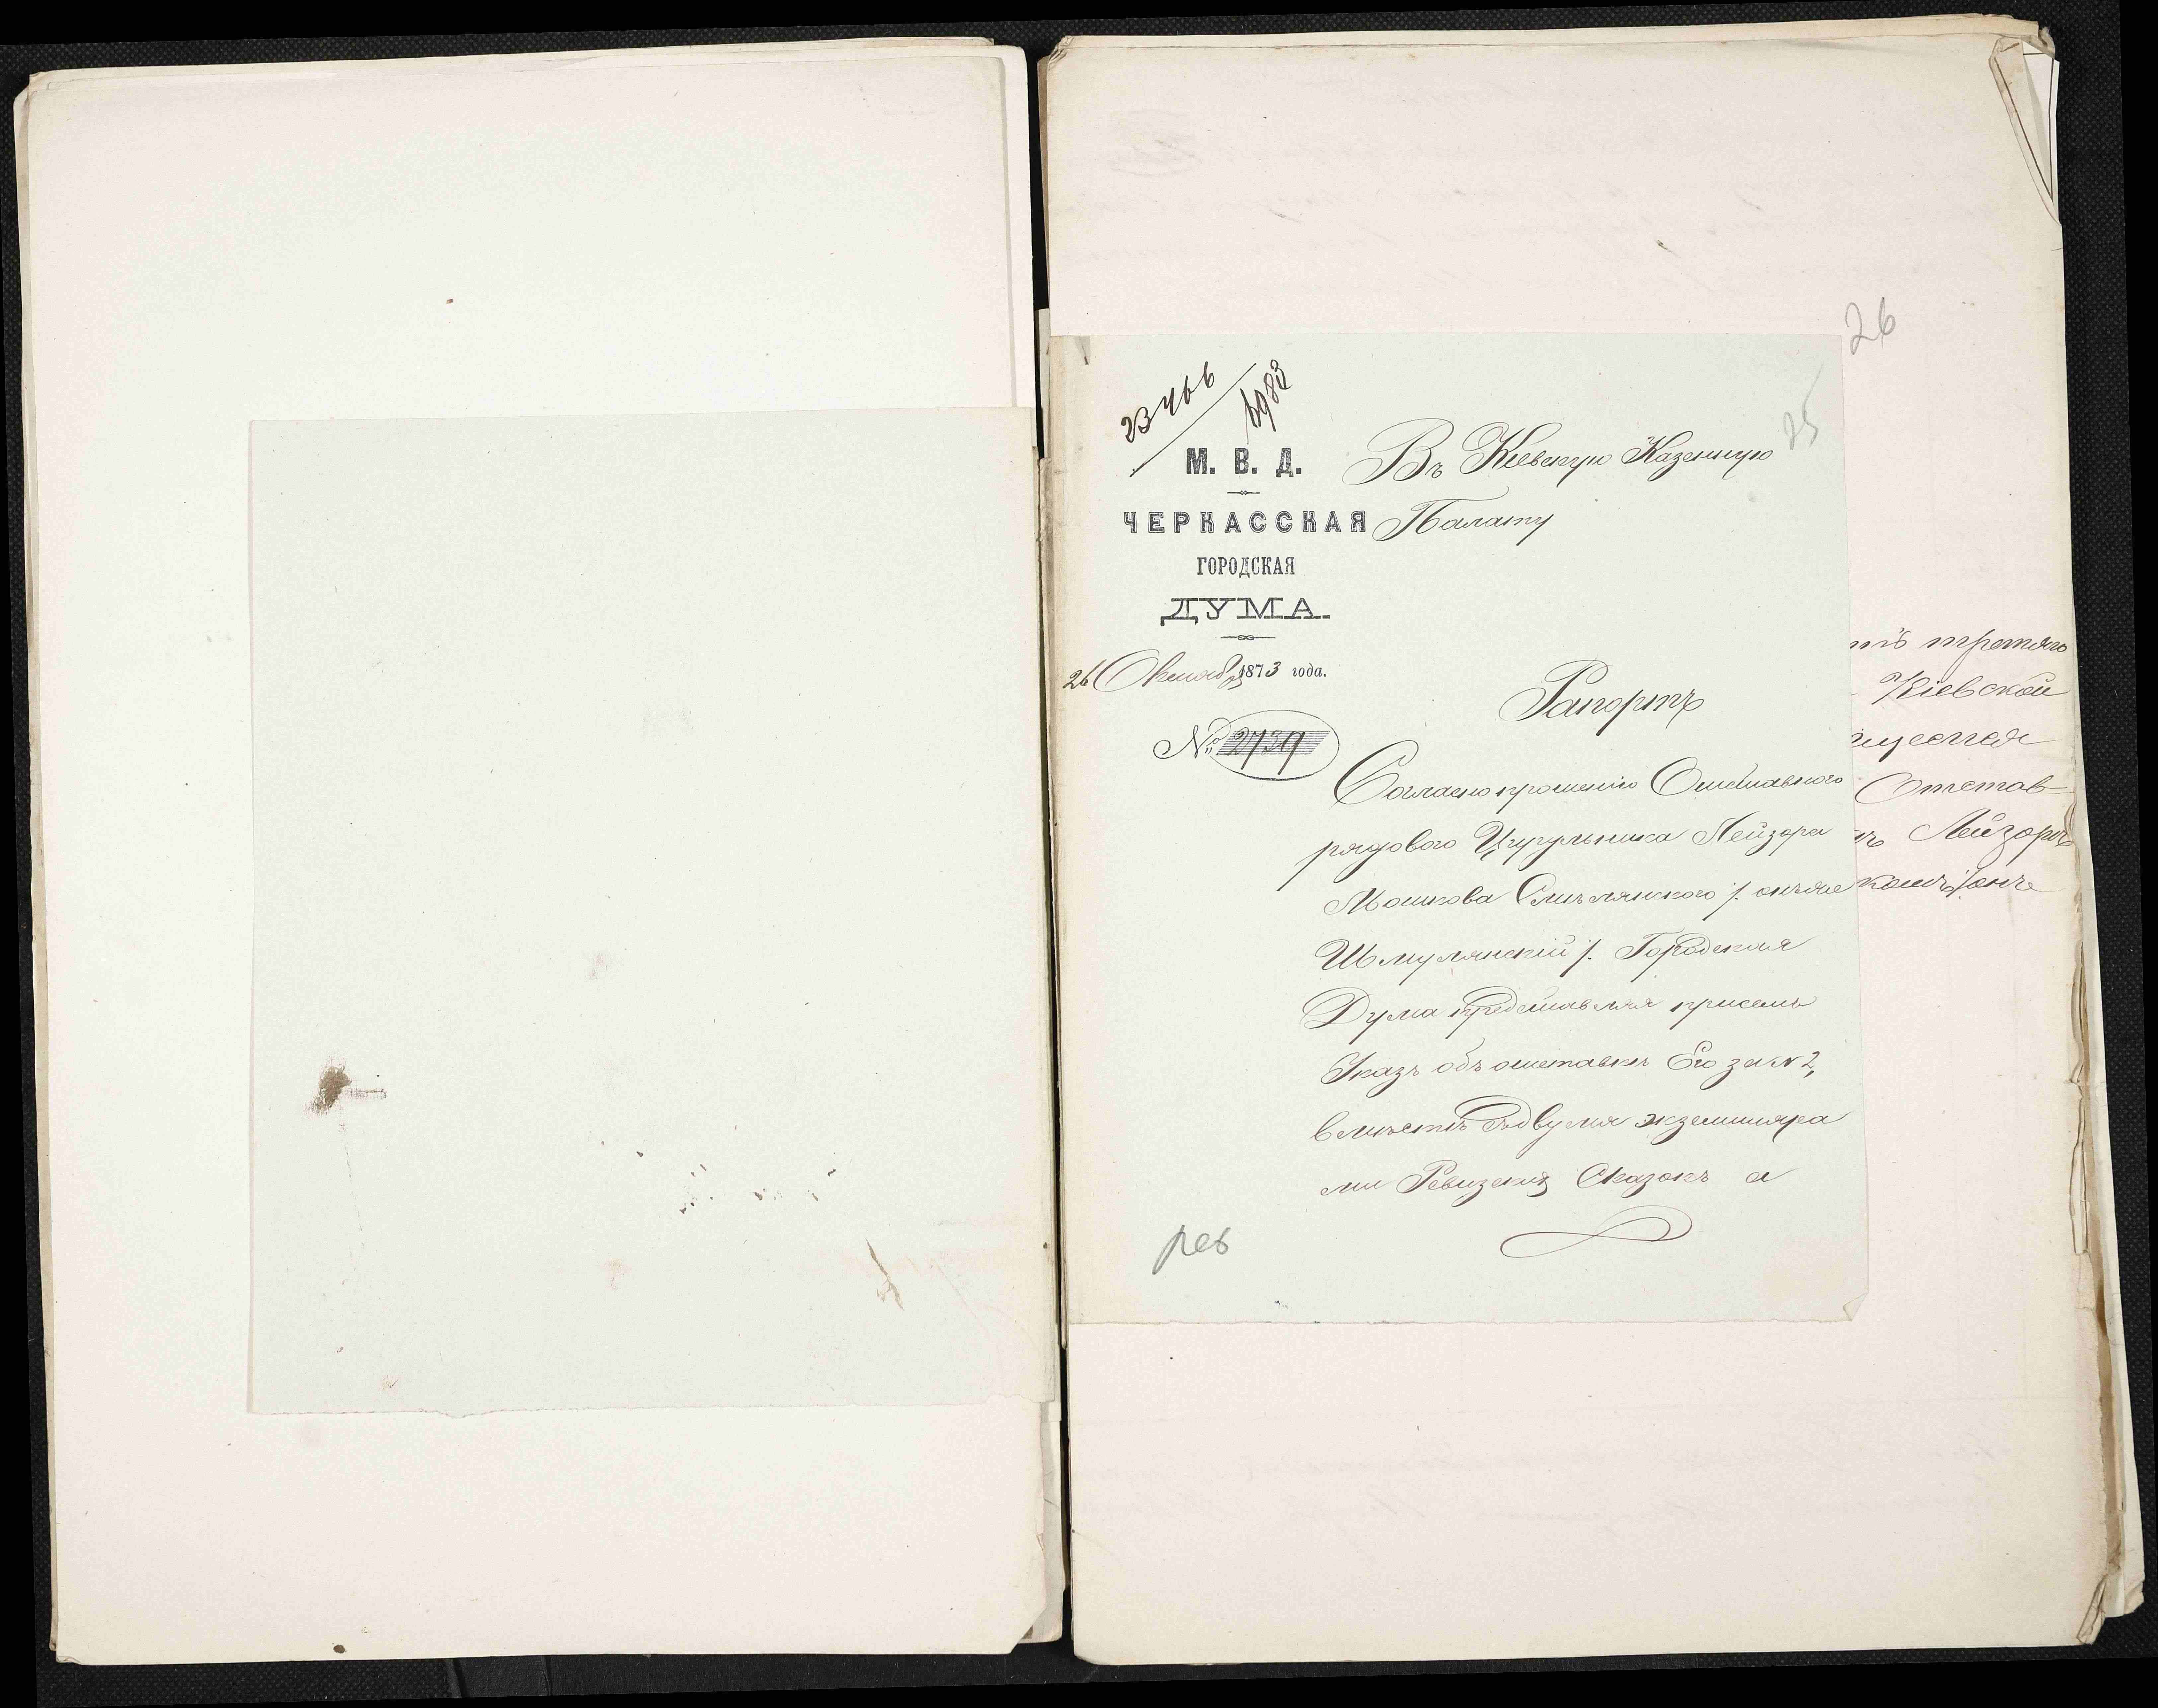 26
25
23466
6983
М. В. Д.
ЧЕРКАССКАЯ
ГОРОДСКАЯ
ДУМА.
26 Октяб 1873 года.
№ 2739
Въ Кіевскую Казенную
Палату
Рапортъ
Согласно прошенію Отставного
рядового Цирульника Лейзора
Мошкова Смѣлянского /: онъже
Шмулянскій /: Городская
Дума представляя присемъ
Указъ объ отставкѣ Его за № 2,
вместѣ съ двумя экземпляра
ми Ревизскихъ Сказокъ а
рев
третяго
Кіевской
Отстав-
Лейзоръ
онъ